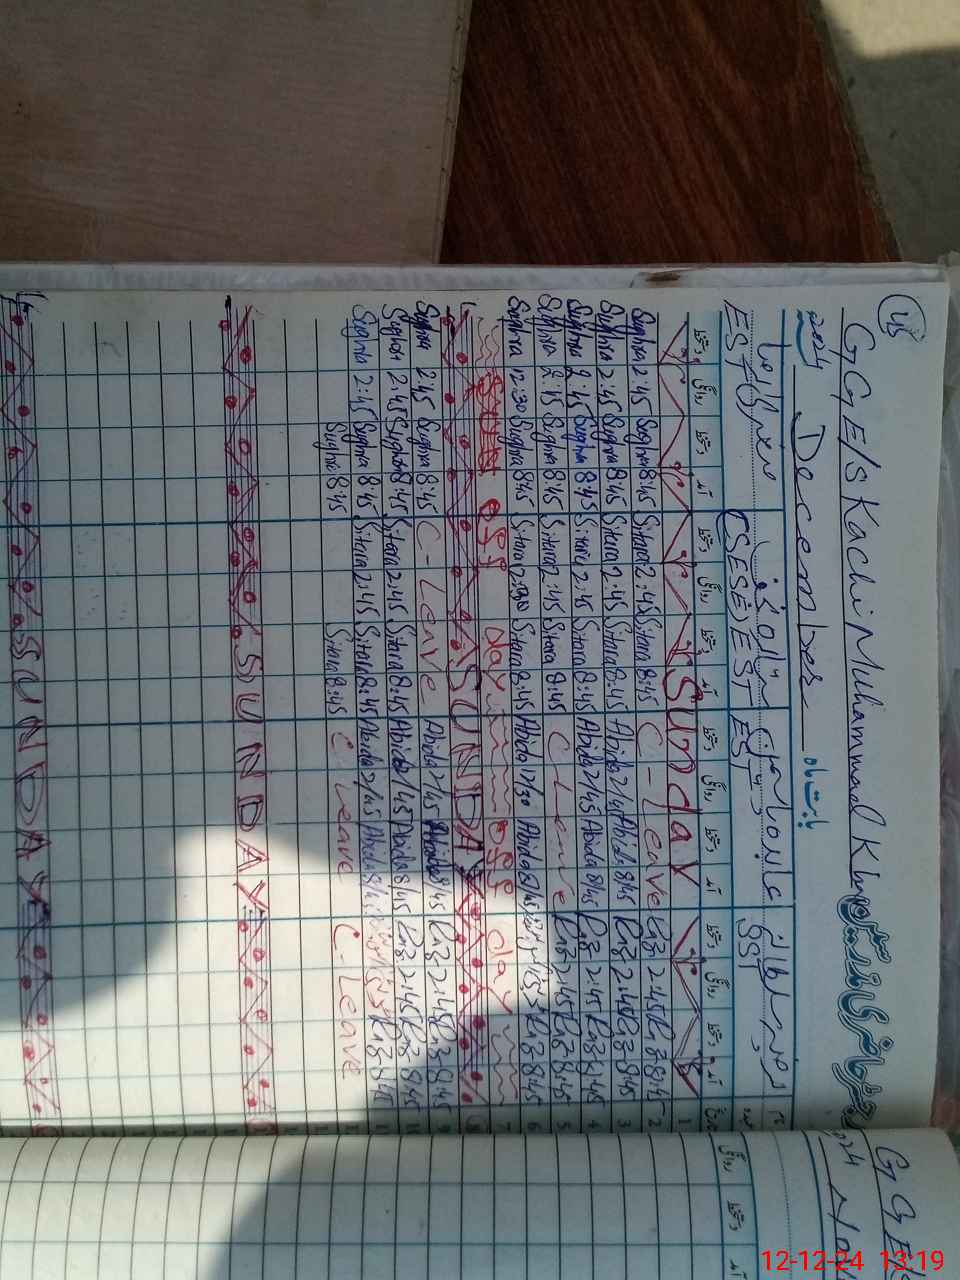 45
GGE/S Kachi Muhammad Khan رجسٹر حاضری مدرسین
2024 December بابت ماہ
EST (SESE) EST EST SST
دستخط روانگی دستخط آمد دستخط روانگی دستخط آمد دستخط روانگی دستخط آمد دستخط روانگی دستخط آمد تاریخ
Sunday 1
Sughra 2:45 Sughra 8:45 Sitara 2:45 Sitara 8:45 C-Leave 2:45 8:45 2
Sughra 2:45 Sughra 8:45 Sitara 2:45 Sitara 8:45 Abida 2/45 Abida 8/45 2:45 8:45 3
Sughra 2:45 Sughra 8:45 Sitara 2:45 Sitara 8:45 Abida 2/45 Abida 8/45 2:45 8:45 4
Sughra 2:45 Sughra 8:45 Sitara 2:45 Sitara 8:45 C-Leave 2:45 8:45 5
Sughra 12:30 Sughra 8:45 Sitara 12:30 Sitara 8:45 Abida 12/30 Abida 8/45 8:45 6
off day off day 7
SUNDAY 8
Sughra 2:45 Sughra 8:45 C-Leave Abida 2/45 Abida 8/45 2:45 8:45 9
Sughra 2:45 Sughra 8:45 Sitara 2:45 Sitara 8:45 Abida 2/45 Abida 8/45 2:45 8:45 10
Sughra 2:45 Sughra 8:45 Sitara 2:45 Sitara 8:45 Abida 2/45 Abida 8/45 8:45 11
Sughra 8:45 Sitara 8:45 C-Leave C-Leave
SUNDAY
SUNDAY
GGE/S
2024
روانگی دستخط آمد
12-12-24 13:19